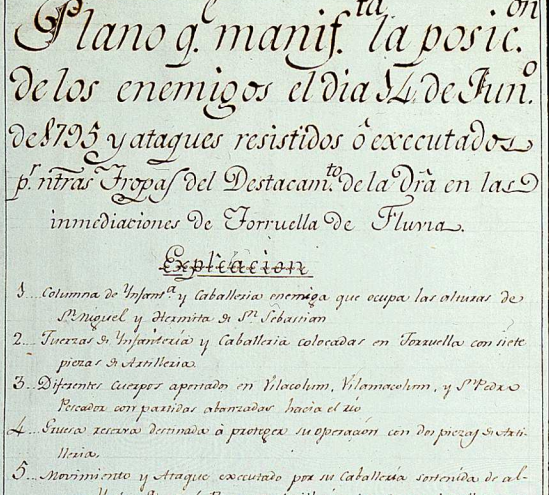 Plano q.e manif.ta la posic.on
de los enemigos el dia 14. de Jun.o
de 1795 y ataques resistidos ô executados
p.r ntras Tropas del Destacam.to de la Dra en las
inmediaciones de Torruella de Fluvia.
Explicacion
1... Columna de Ynfant.a y Caballeria enemiga que ocupa las alturas de
S.n Miguel y Hermita de S.n Sebastian
2... Fuerzas de Ynfanteria y Caballeria colocadas en Torruella con siete
piezas de Artilleria
3... Diferentes Cuerpos apostado en Vilacolum, Vilamacolum, y S.n Pedro
Pescador con partidas abanzadas hacia el rio
4... Gruesa reserva destinada à proteger su operacion con dos piezas de Arti-
lleria.
5... Movimiento y Ataque executado por su Caballeria sostenida de al-